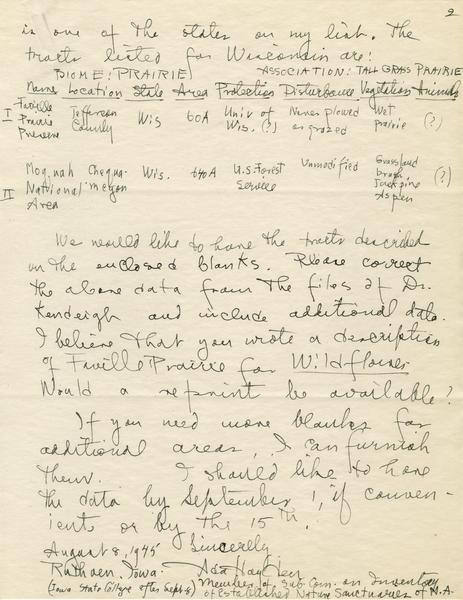 2
is one of the states on my list. The
tracts listed for Wisconsin are:
BIOME: PRAIRIE ASSOCIATION: TALL GRASS PRAIRIE
Name Location State Area Protection Disturbance Vegetation Animals
I Faville Prairie Preserve Jefferson County Wis 60A Univ of Wis. (?) Never plowed or grazed Wet prairie (?)
II Moq.nah National Area Chequamegon Wis. 640A U.S. Forest Service Unmodified Grassland brush, Jack pine Aspen (?)
We would like to have the tracts described
on the enclosed blanks. Please correct
the above data from the files of Dr.
Kendeigh and include additional data.
I believe that you wrote a description
of Faville Prairie for Wildflower
Would a reprint be available?
If you need more blanks for
additional areas, I can furnish
them. I should like to have
the data by September 1, if conven-
ient or by the 15th.
August 8, 1945 Sincerely
Ruthven, Iowa. Ada Hayden
(Iowa State College after Sept 6) Member of Sub Com. on Inventory
of Established Nature Sanctuaries of N.A.